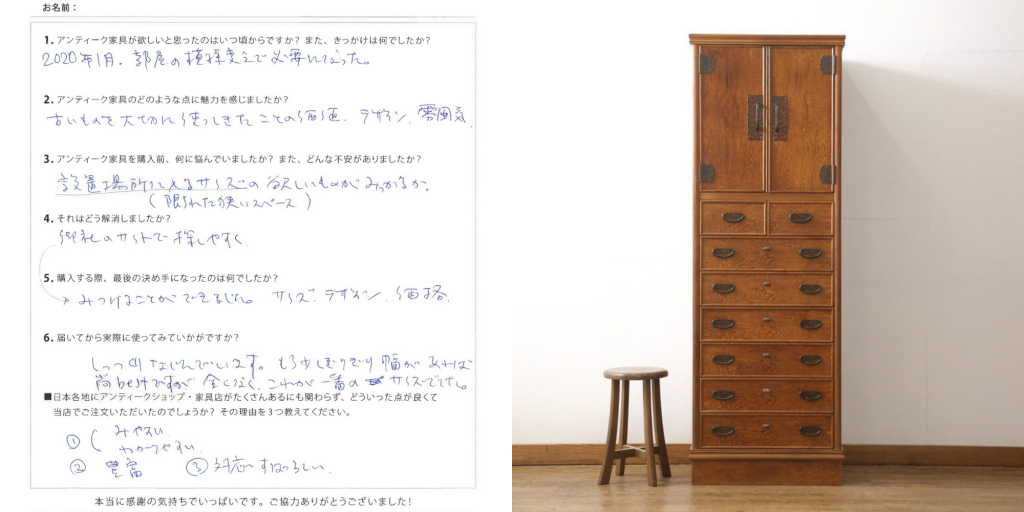 お名前：
1. アンティーク家具が欲しいと思ったのはいつ頃からですか？ また、きっかけは何でしたか？
2020年1月、部屋の模様変えで必要になった。
2. アンティーク家具のどのような点に魅力を感じましたか？
古いものを大切に使ってきたことの価値、デザイン、雰囲気
3. アンティーク家具を購入前、何に悩んでいましたか？ また、どんな不安がありましたか？
設置場所に入るサイズの欲しいものがみつかるか。
（限られた狭いスペース）
4. それはどう解消しましたか？
御社のサイトで探しやすく
5. 購入する際、最後の決め手になったのは何でしたか？
→みつけることができました。サイズ、デザイン、価格、
6. 届いてから実際に使ってみていかがですか？
しっくりなじんでいます。もう少しぎりぎり幅があれば
尚bestですが 全じなく、これが一番のサイズでした。
■日本各地にアンティークショップ・家具店がたくさんあるにも関わらず、どういった点が良くて
当店でご注文いただいたのでしょうか？ その理由を3つ教えてください。
① ( みやすい
わかりやすい
② 豊富 ③ 対応すばらしい
本当に感謝の気持ちでいっぱいです。ご協力ありがとうございました！